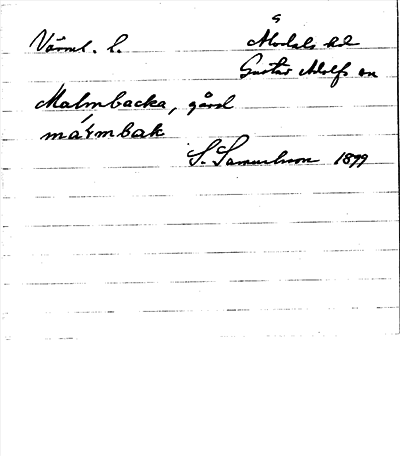 Värml. l.
Älvdals hd
Gustav Adolfs sn
Malmbacka, gård
mármbak
S. Samuelsson 1899